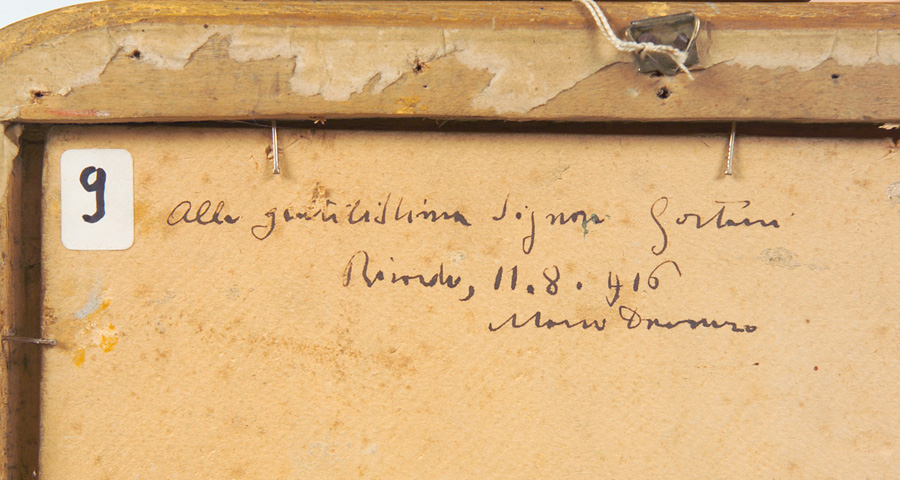 9
Alla gentilissima Signora Gortani
Ricordo, 11.8.916
Marco Davanzo